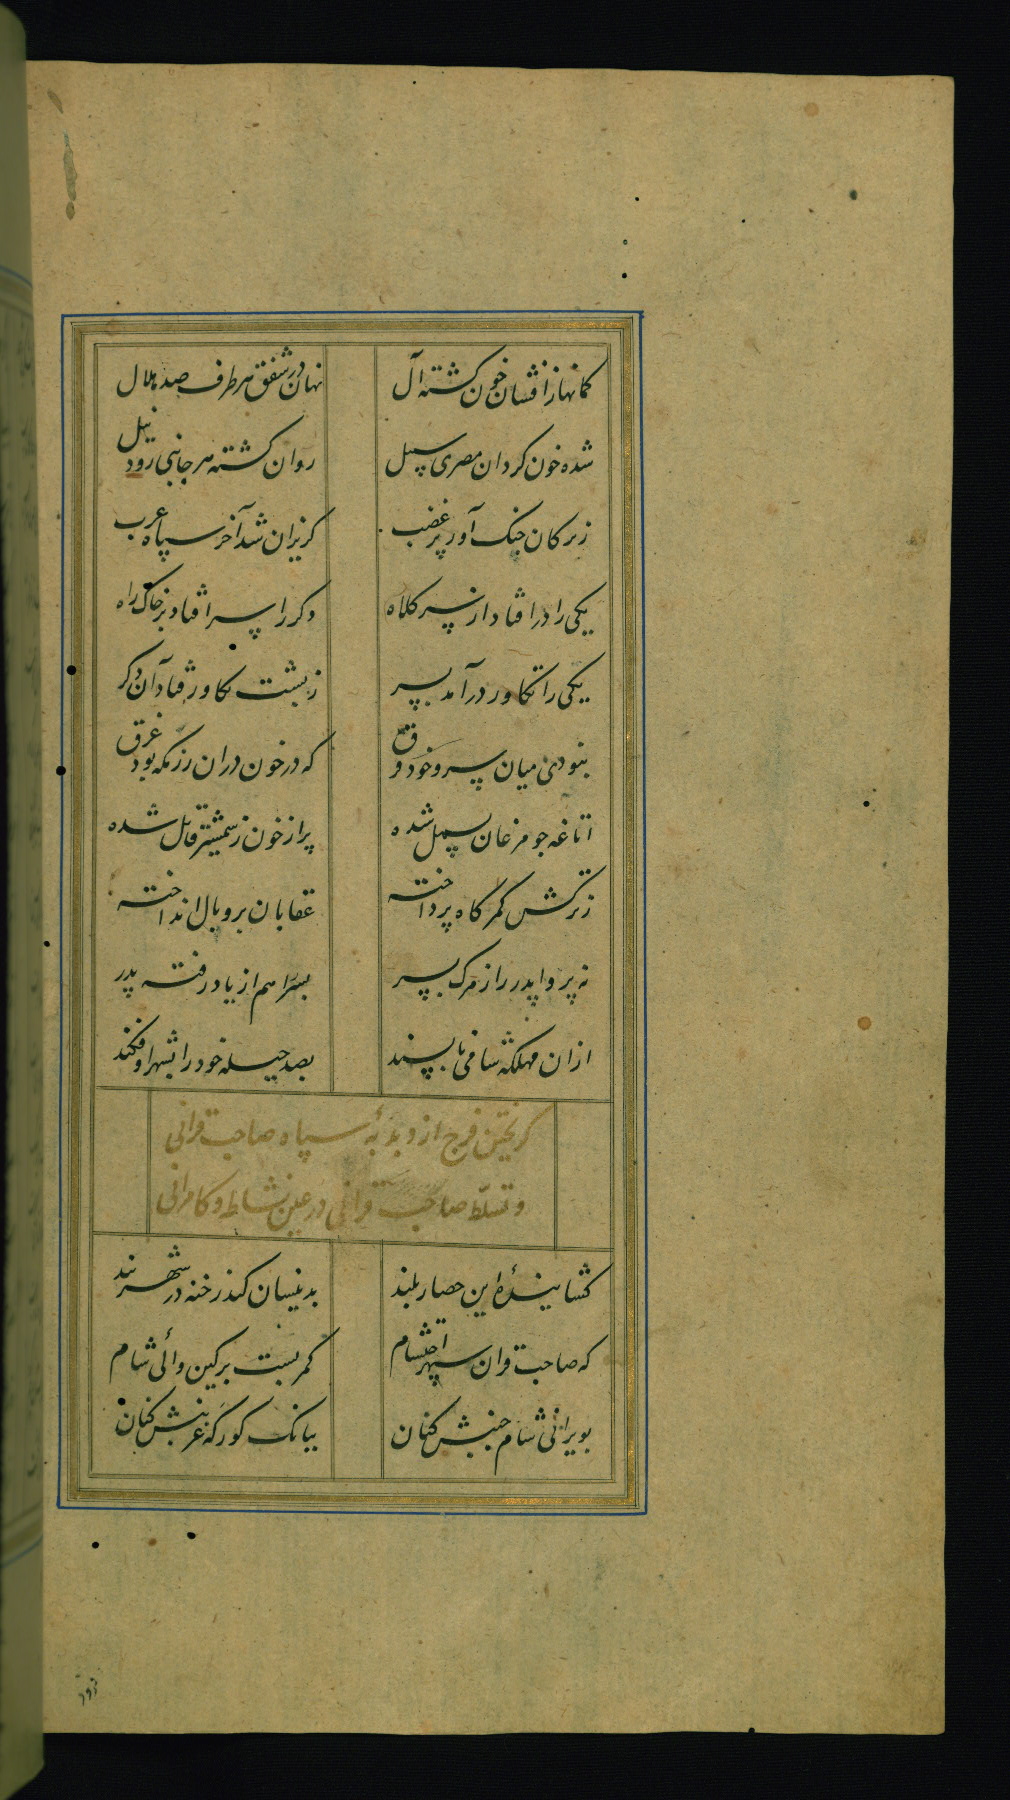 کمانها ز افشان خون کشته آل
نهان در شفق هر طرف صد هلال
شده خون کردان مصری سبیل
روان کشته هر جانبی رود نیل
ز ترکان جنک آور پر غضب
کریزان شد آخر سپاه عرب
یکی را در افتاد از سر کلاه
دکر را سر افتاد بر خاک راه
یکی را تکاور درآمد بسر
ز پشت تکاور فتاد آن دکر
نبودی میان سر و خود فرق
که در خون دران رزمکه بود غرق
اتاغه چو مرغان بسمل شده
پر از خون ز شمشیر قاتل شده
ز ترکش کمرکاه پرداخته
عقابان پر و بال انداخته
نه پروا پدر را ز مرک پسر
پسر را هم از یاد رفته پدر
ازان مهلکه شامی ناپسند
بصد حیله خود را بشهر او فکند
کریختن فرج از دبدبهٔ سپاه صاحب قرانی
و تسلّط صاحب قرانی در عین نشاط و کامرانی
کشایندهٔ این حصار بلند
بدینسان کند رخنه در شهر بند
که صاحب قران سپهر احتشام
کمر بست بر کین والی شام
بویرانی شام جنبش کنان
ببانک کورکه غرنبش کنان